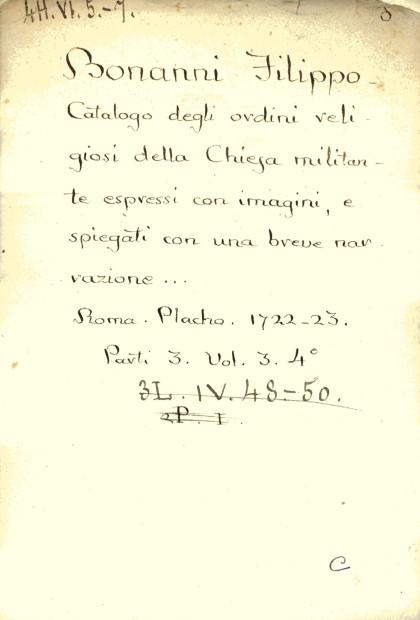 4H. VI. 5.-7.
Bonanni Filippo -
Catalogo degli ordini reli -
giosi della Chiesa militan -
te espressi con imagini, e
spiegati con una breve nar -
razione ...
Roma. Placho. 1722-23.
Parti 3. Vol. 3. 4°
3L. IV. 48-50.
C